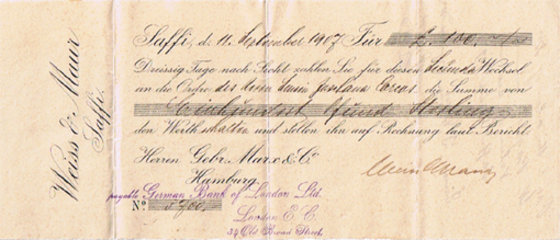 Weiss & Maur
Saffi.
Saffi, d. 11. September 1907 Für £ 100.-/-
Dreissig Tage nach Sicht zahlen Sie für diesen Secunda Wechsel
an die Ordre des Herrn die Summe von
Einhundert Pfund Sterling
den Werth erhalten und stellen ihn auf Rechnung laut Bericht
Herren Gebr. Marx & Co
Hamburg.
payable German Bank of London Ltd.
No.
London E.C.
34 Old Broad Street.